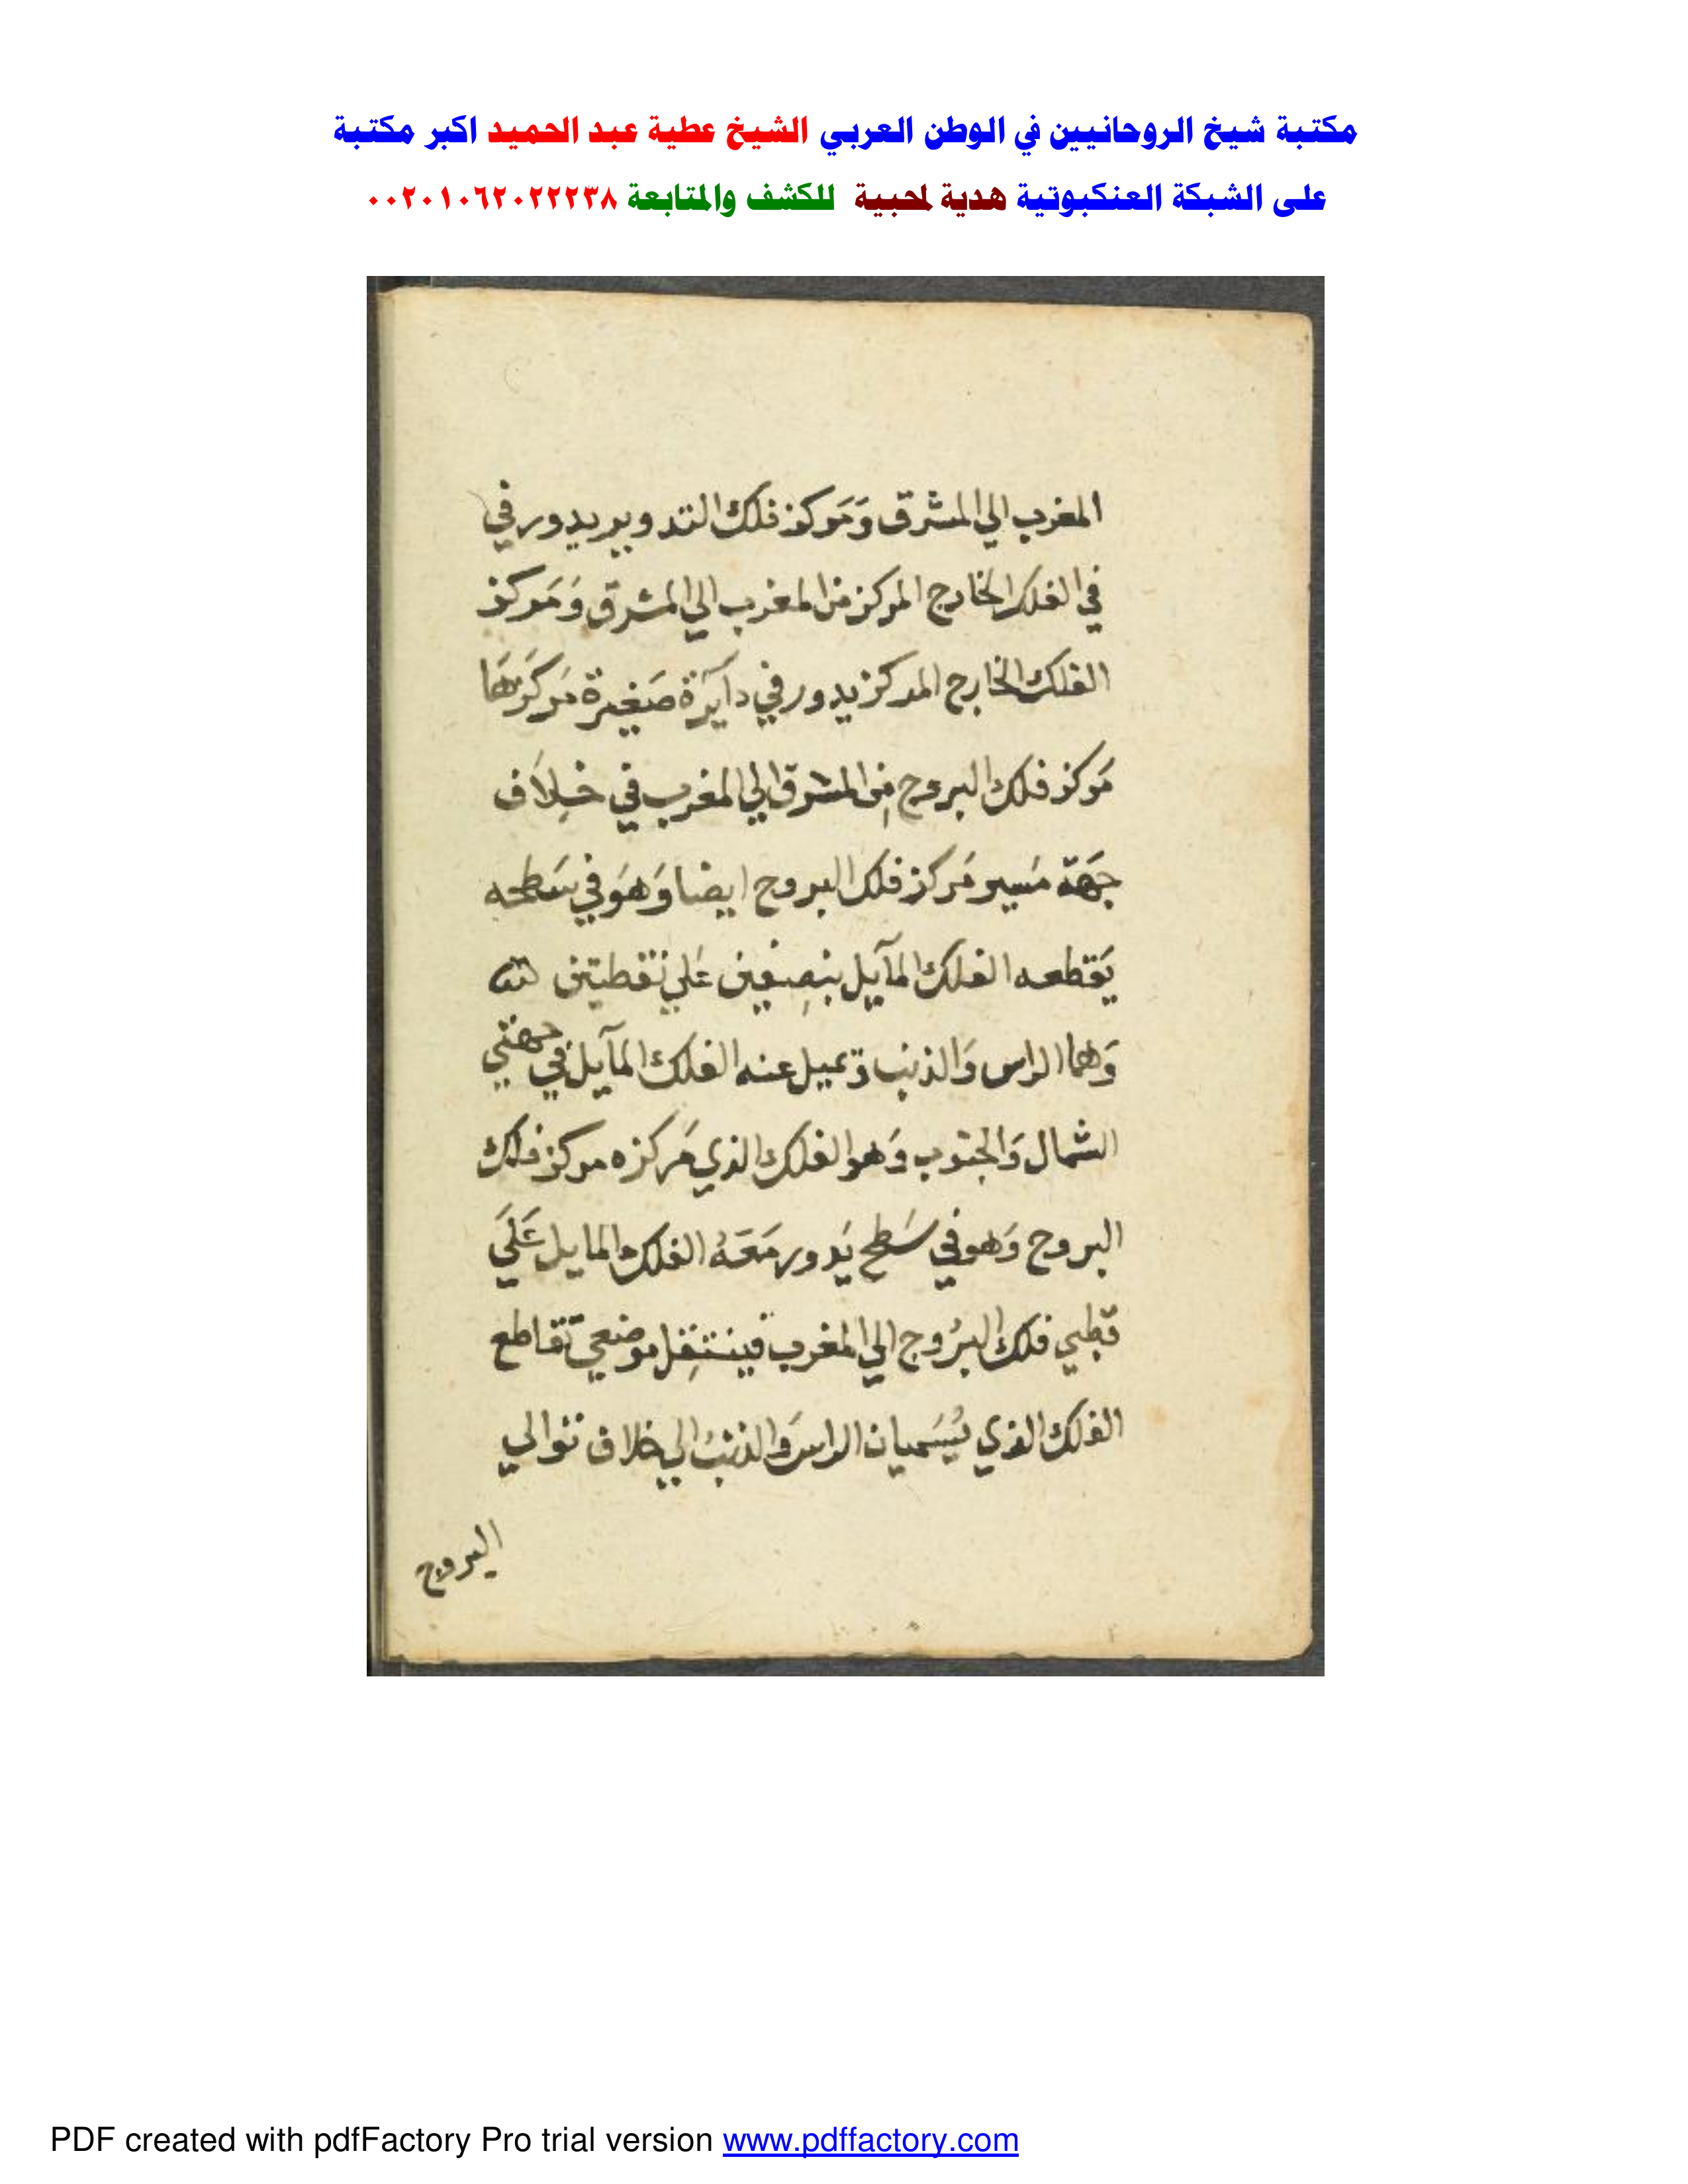 مكتبة شيخ الروحانيين في الوطن العربي الشيخ عطية عبد الحميد اكبر مكتبة
على الشبكة العنكبوتية هدية لمحبية للكشف والمتابعة ٠٠٢٠١٠٦٢٠٢٢٢٣٨
المغرب الي المشرق وَمَركز فلك التدوير يدور في
في الفلك الخارج المركز من المغرب الي المشرق وَمَركز
الفلك الخارج المركز يدور في دآيَرة صَغيرة مَركَزهَا
مَركز فلك البروج مِن المشرق الي المغرب في خِلاَف
جهَة مَسير مَركز فلك البروج ايضا وَهوَ في سَطحه
يَقطعه الفلك المآيل بنصِفين عَلي نقطتين
وَهما الراس وَالذنب وَيميل عنه الفلك المآيل في جهتي
الشمال وَالجنوب وَهو الفلك الذي مَركزه مركز فلك
البروج وَهو في سَطح يَدور مَعَهُ الفلك المايل عَلَي
قطبي فلك البُروج الي المغرب فينتقِل موضعي تقَاطع
الفلك الذي يُسَميان الراسَ وَالذنبُ الي خلاف توالي
البروج
PDF created with pdfFactory Pro trial version www.pdffactory.com